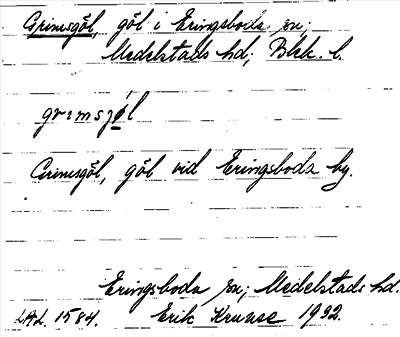 Grimsgöl, göl i Eringsboda sn;
Medelstads hd; Blek. l.
grɪmsjøl
Grimsgöl, göl vid Eringsboda by.
Eringsboda sn; Medelstads hd.
LAL. 1584. Erik Kruuse 1932.